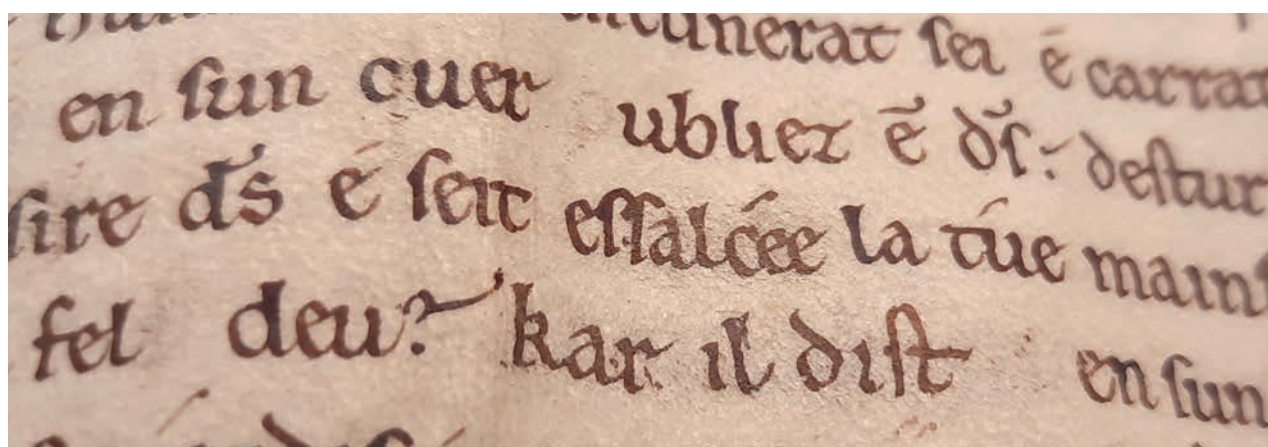 sei é carrat
en sun cuer ublier ē d̄s: destur
sire d̄s é seit essalcée la túe main
fel deu? kar il dist en sun